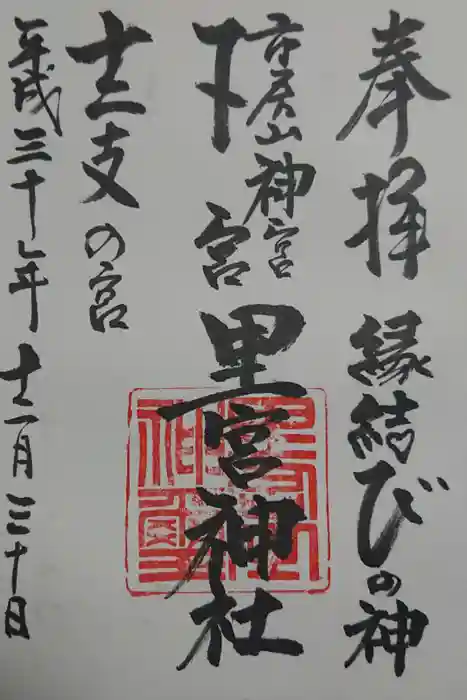 奉拝 縁結びの神
市房山神宮
下宮 里宮神社
十二支の宮
平成三十年十二月三十日